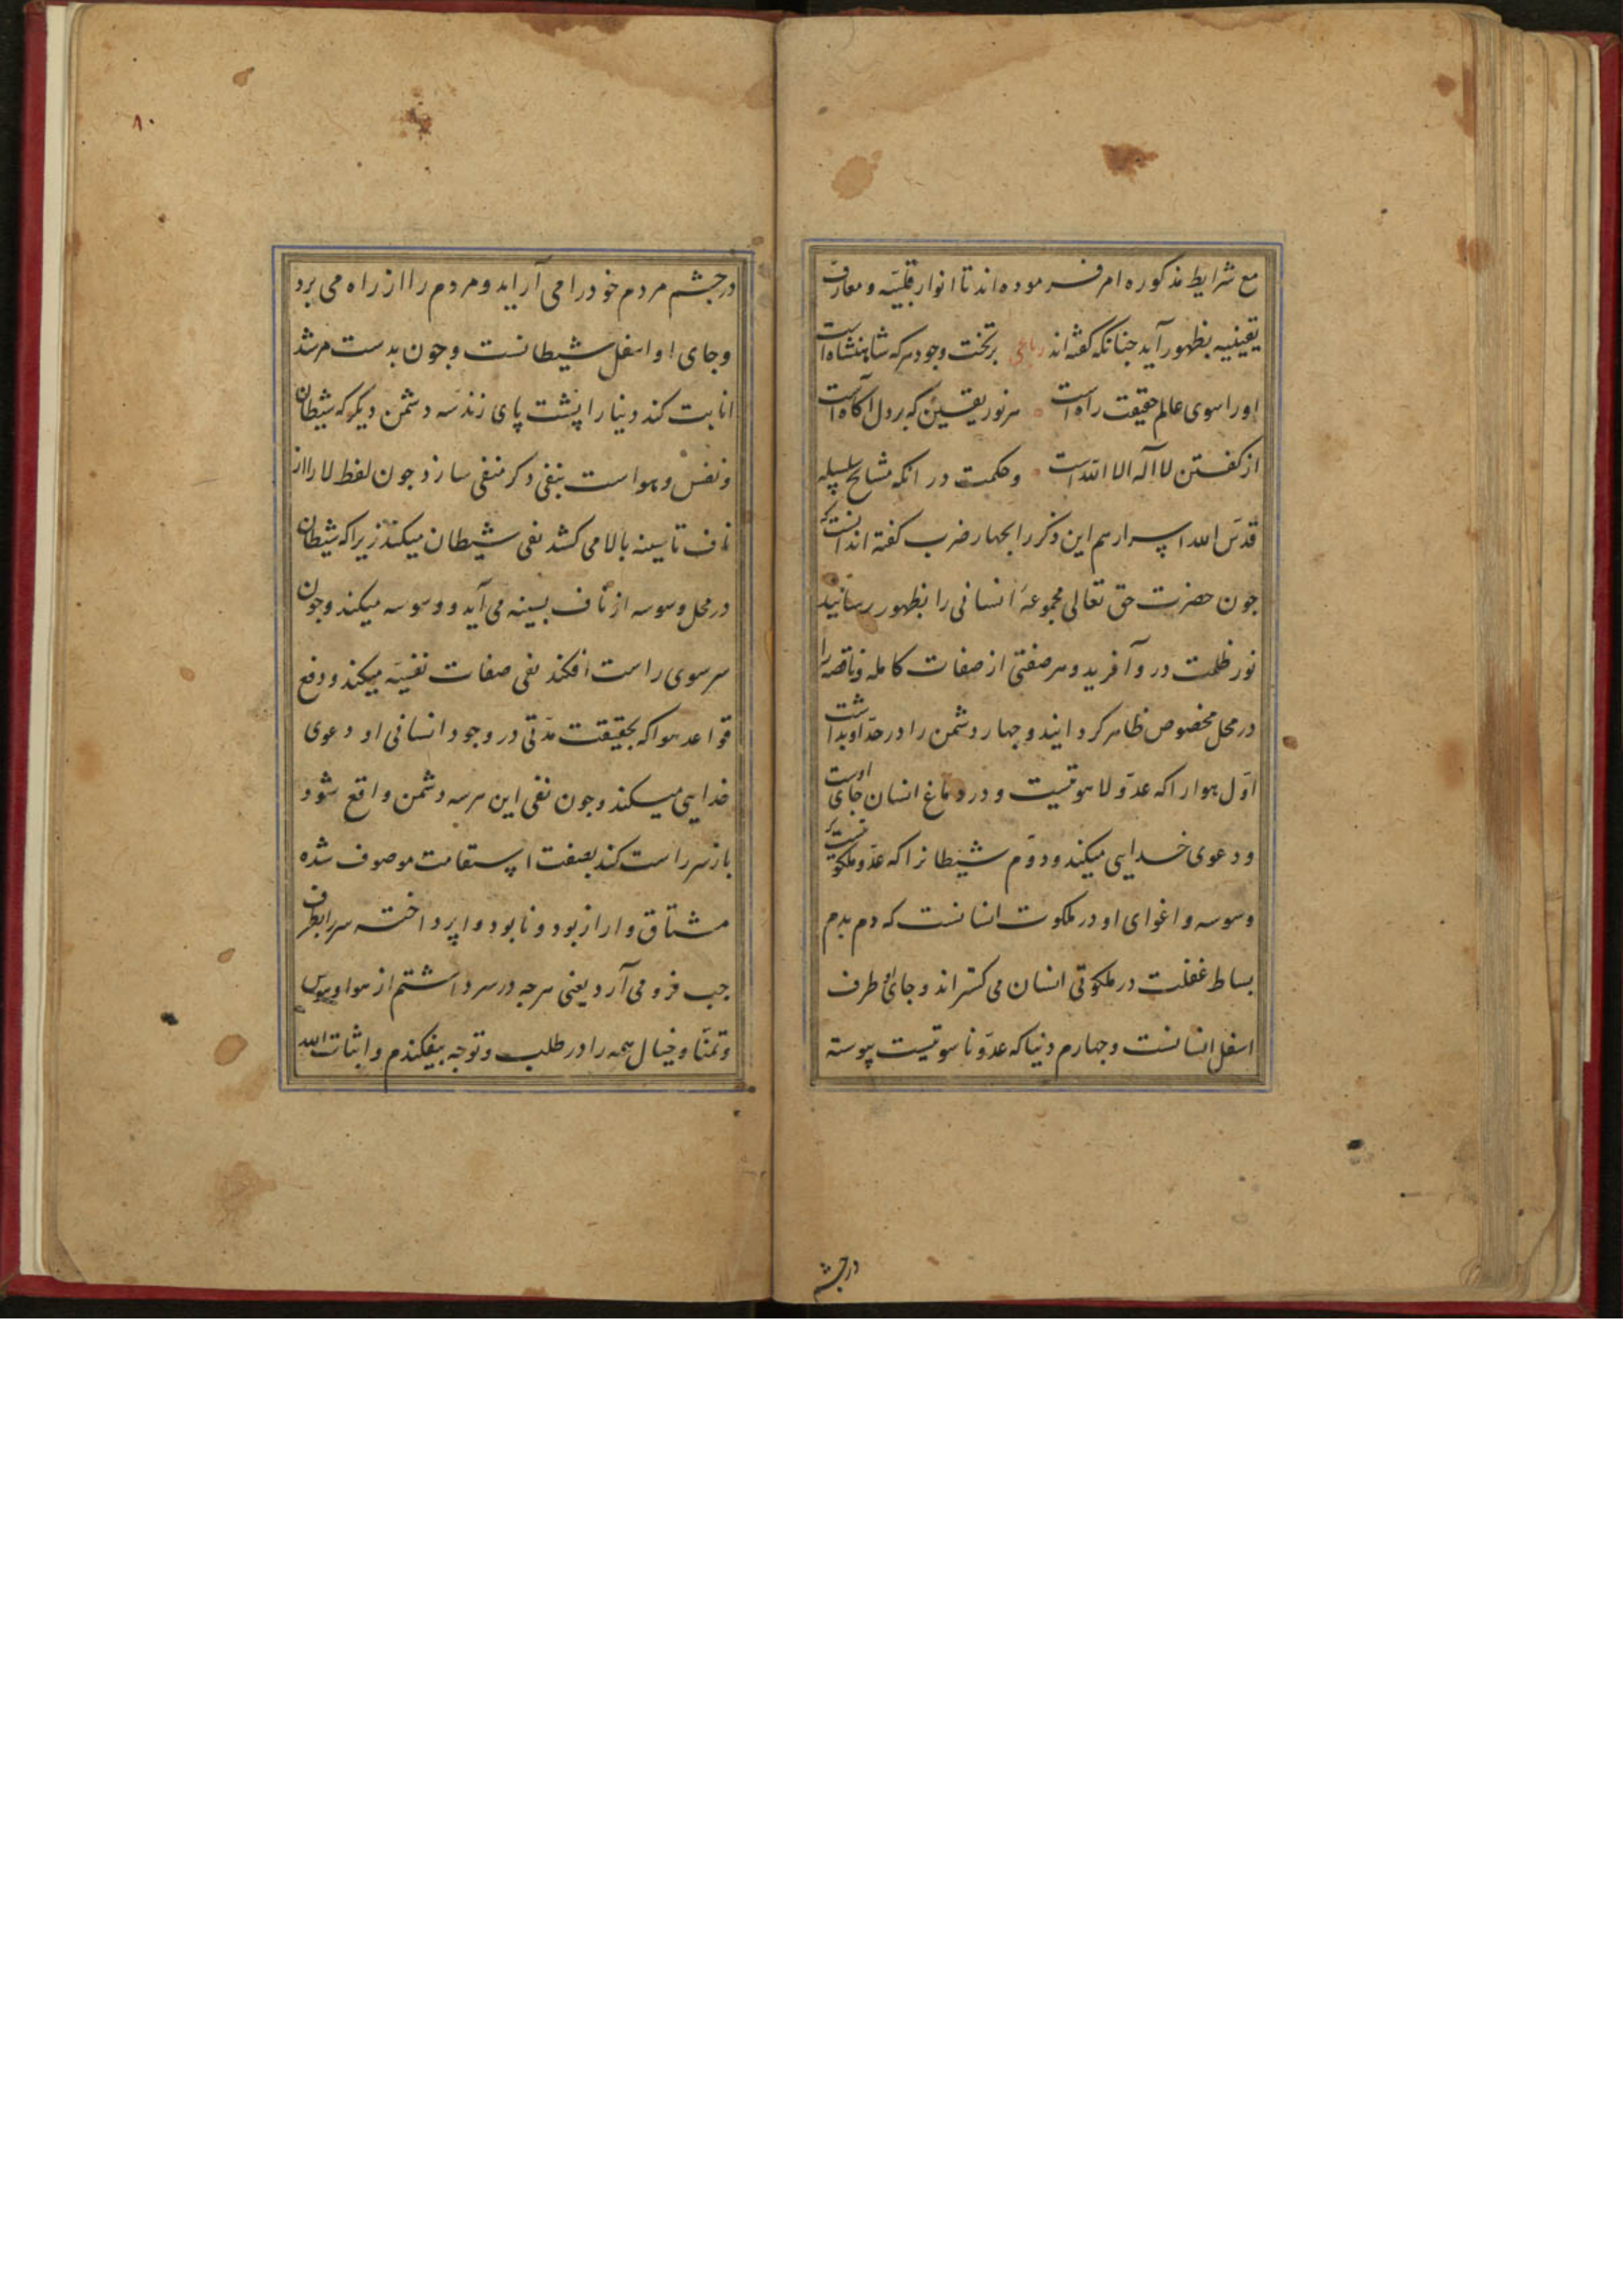 مع شرایط مذکوره امر فرموده اند تا انوار قلبیّه و معارف
یقینییه بظهور آید جنانکه کفته اند رباعی برتخت وجود هرکه شاهنشاه است
او را سوی عالم حقیقت راه است هر نور یقین که بر دل آکاه است
از کفتن لا اله الا الله است وحکمت در انکه مشایخ سلسله
قدّس الله اسرارهم این ذکر را بجهار ضرب کفته اند انست که
جون حضرت حق تعالی مجموعهٔ انسانی را بظهور رسانید
نور ظلمت در و آفرید و هر صفتی از صفات کامله و ناقصه را
در محل مخصوص ظاهر کردانید و جهار دشمن را در حدّ او بداشت
اوّل هوا را که عدوّ لاهوتیست و در دماغ انسان جای اوست
و دعوی خدایی میکند و دوّم شیطانرا که عدوّ ملکوتیست که
وسوسه و اغوای او در ملکوت انسانست که دم بدم
بساط غفلت در ملکوتی انسان می کستراند و جای او طرف
اسفل انسانست و جهارم دنیا که عدوّ ناسوتیست پیوسته
درجشم
۸۰
درجشم مردم خود را می آراید و مردم را از راه می برد
وجای او اسفل شیطانست وجون بدست مرشد
انابت کند دنیا را پشت پای زند سه دشمن دیکر که شیطان
و نفس و هواست بنفی ذکر منفی سازد جون لفظ لا را از
ناف تا سینه بالا می کشد نفی شیطان میکند زیرا که شیطان
در محل وسوسه از ناف بسینه می آید و وسوسه میکند وجون
سر سوی راست افکند نفی صفات نفسیّه میکند و دفع
قواعد هوا که بحقیقت مدّتی در وجود انسانی او دعوی
خدایی میکند وجون نفی این هر سه دشمن واقع شود
باز سر راست کند بصفت استقامت موصوف شده
مشتاق وار از بود و نابود وا پرداخته سر را بطرف
جب فرو می آرد یعنی هرجه در سر داشتم از هوا و هوس
وتمنّا و خیال همه را در طلب و توجه بیفکندم و اثبات الله